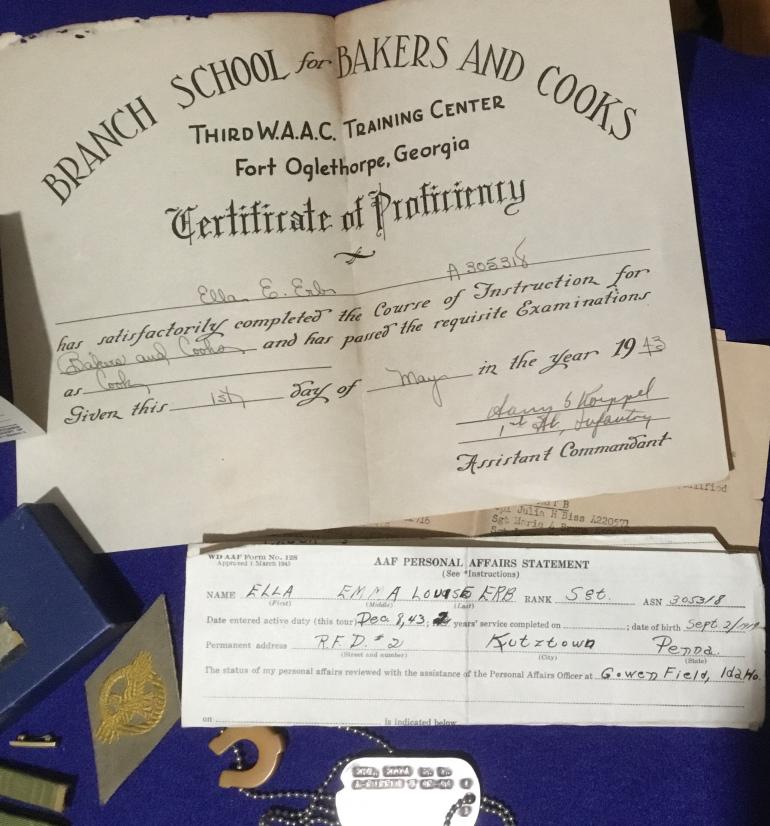 BRANCH SCHOOL for BAKERS AND COOKS
THIRD W.A.A.C. TRAINING CENTER
Fort Oglethorpe, Georgia
Certificate of Proficiency
Ella E. Erb A 305318
has satisfactorily completed the Course of Instruction for
Bakers and Cooks and has passed the requisite Examinations
as Cook
Given this 1st day of May in the year 1943
Harry S Koeppel
1st Lt, Infantry
Assistant Commandant
Julia H Biss A220571
Sgt Marie A
WD AAF Form No. 128
Approved 1 March 1945
AAF PERSONAL AFFAIRS STATEMENT
(See *Instructions)
NAME ELLA EMMA LOUISE ERB RANK Sgt. ASN 305318
(First) (Middle) (Last)
Date entered active duty (this tour) Dec. 8, 43; years' service completed on ; date of birth Sept 2/
Permanent address R.F.D. #2 Kutztown Penna.
(Street and number) (City) (State)
The status of my personal affairs reviewed with the assistance of the Personal Affairs Officer at Gowen Field, Idaho.
on is indicated below